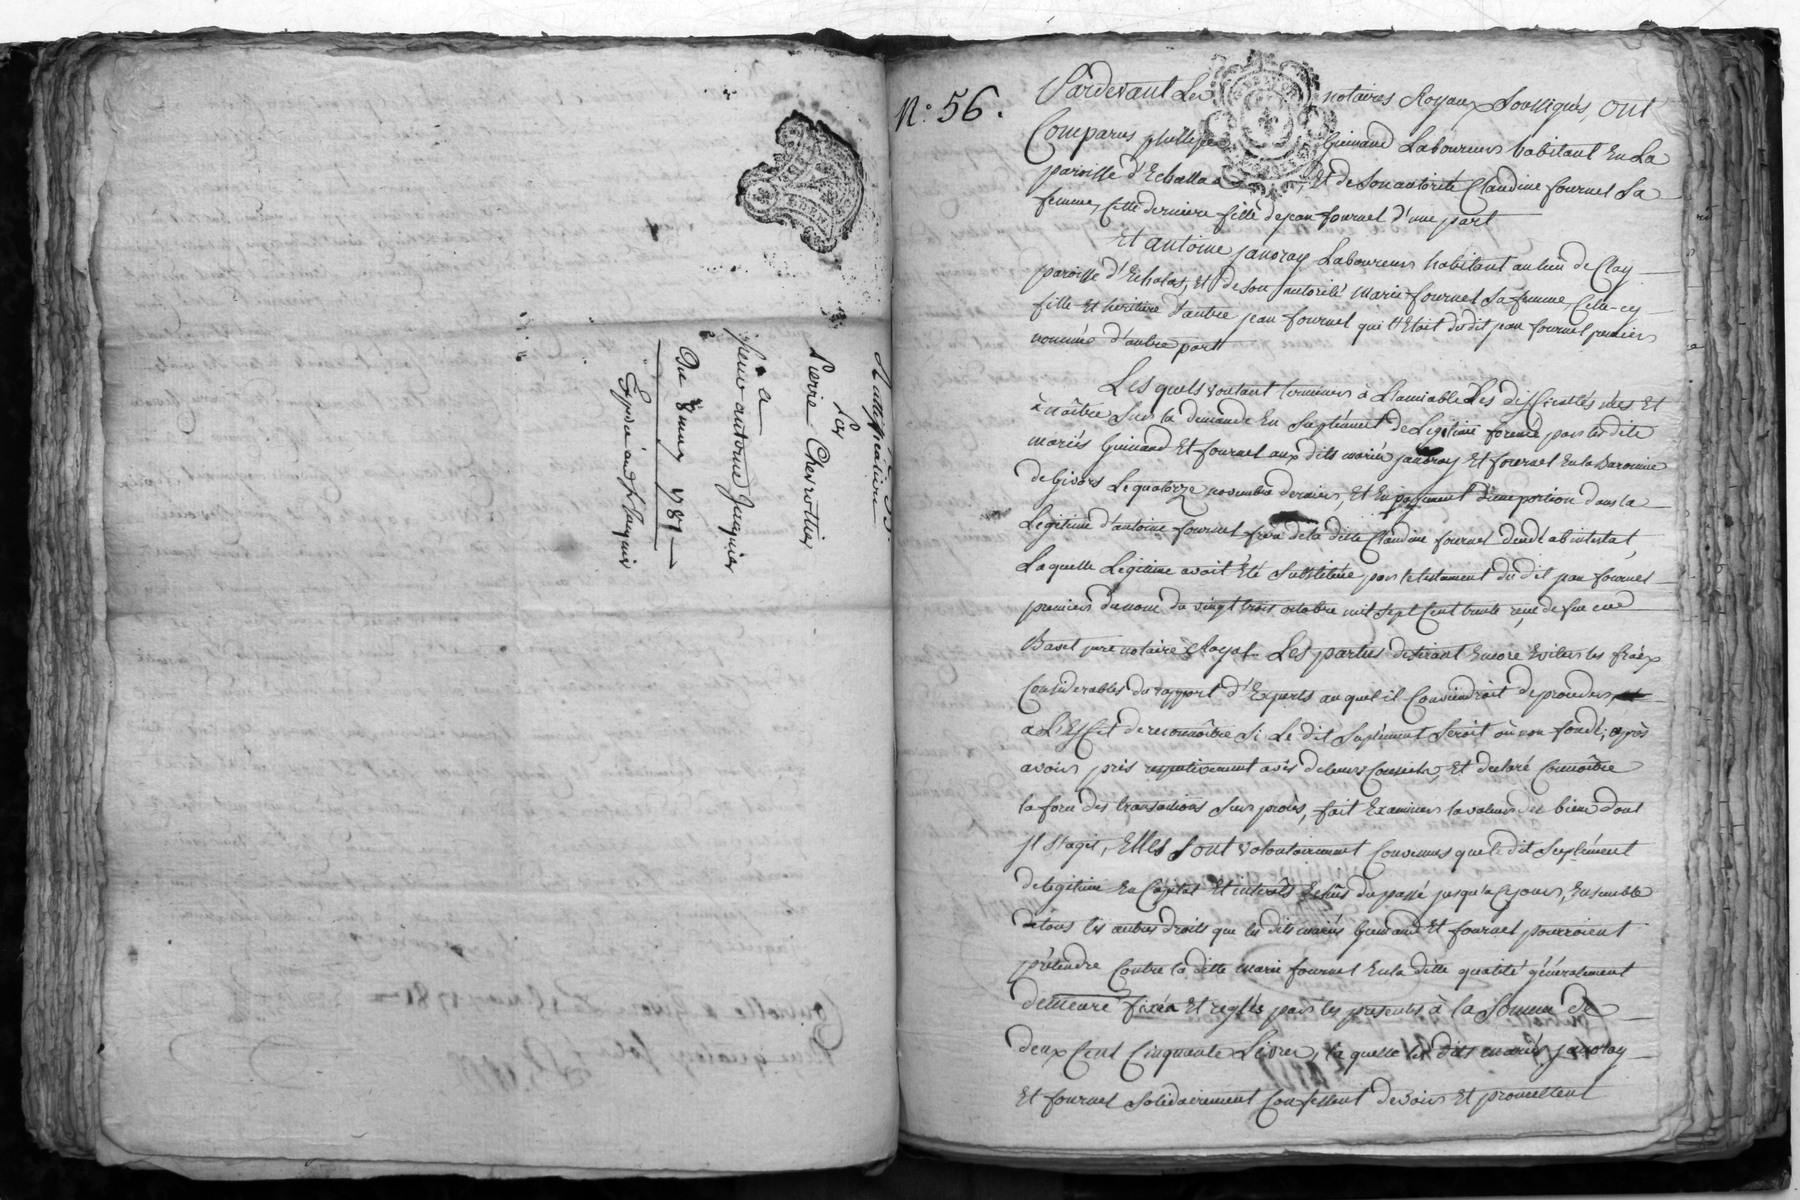 55.
Les
Pierre Chevrottier
a
Sieur antoine Jacquier
Du 8 may 1781
N.º 56.
Pardevant Les notaires Royaux Soussignés, ont
Comparus phillipe Guinand Laboureur habitant En La
paroisse d'Echallas, Et de Son autorité Claudine fournel Sa
femme, Cette derniere fille de jean fournel d'une part
Et antoine janoray Laboureur habitant au lieu de Clay
paroisse d'Echalas, Et de Son autorité Marie fournel Sa femme, Celle-cy
fille Et héritiere d'autre jean fournel qui l'Etoit du dit jean fournel premier
nommé d'autre part
Lesquels voulant terminer à L'amiable Les difficultés nées Et
à naître Sur la demande En Supplément de Légitime formée par les dits
mariés Guinand Et fournel aux dits mariés janoray Et fournel En la Baronnie
de Givors Le quatorze novembre dernier, Et En payement d'une portion dans la
Légitime d'antoine fournel frere de la ditte Claudine fournel décédé abintestat,
Laquelle Légitime avoit Eté Substituée par le testament du dit jean fournel
premier du nom du vingt trois octobre mil Sept Cent trente reçu de feu me
Basset notaire Royal. Les parties désirant Encore Eviter les fraix
Considerables du rapport d'Experts auquel il Conviendroit de proceder
a L'Effet de reconnoître Si Le dit Suplément Seroit où non fondé; après
avoir pris respectivement avis de leurs Conseils, Et declaré Connoître
la force des transactions Sur procès, fait Examiner la valeur des biens dont
il S'agit, Elles Sont volontairement Convenues que le dit Suplément
de légitime En Capital Et intérêts Echus du passé jusqu'a Ce jour, Ensemble
de tous les autres droits que les dits mariés Guinand Et fournel pourroient
prétendre Contre la ditte marie fournel En la ditte qualité généralement
demeure fixée Et reglée par les présentes à la Somme de
deux Cent Cinquante Livres, la quelle les dits mariés janoray
Et fournel Solidairement Confessent devoir Et promettent